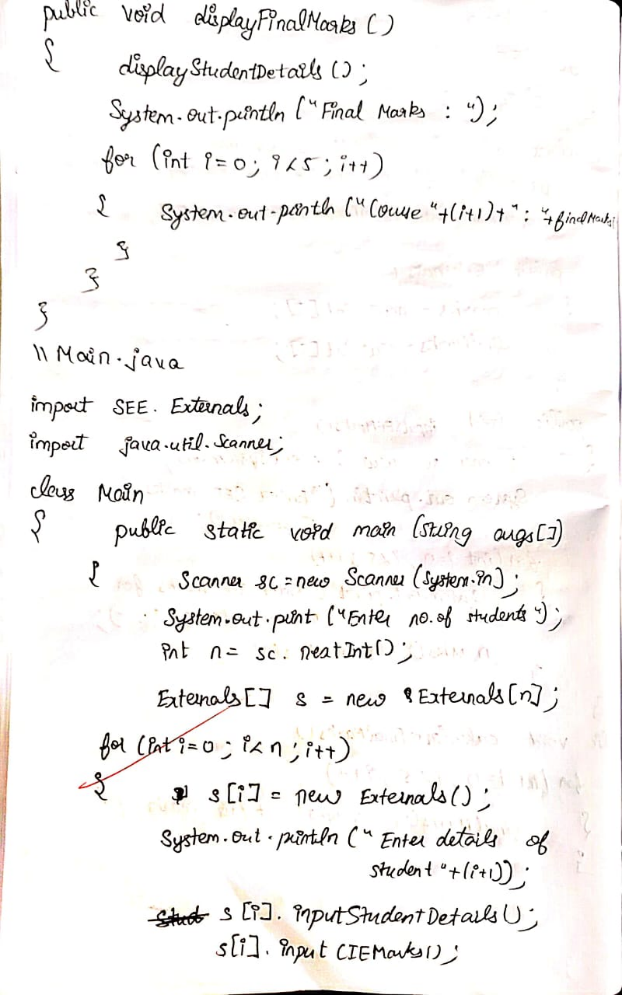 public void displayFinalMarks ()
{ displayStudentDetails ();
System.out.println ("Final Marks : ");
for (int i=0; i<5; i++)
{ System.out.println ("Course "+(i+1)+": "+finalMarks
}
}
}
\\ Main.java
import SEE. Externals;
import java.util.Scanner;
class Main
{ public static void main (String args[])
{ Scanner sc = new Scanner (System.in);
System.out.print ("Enter no. of students ");
int n = sc. neatInt();
Externals[] s = new Externals[n];
for (int i=0; i<n; i++)
{ s[i] = new Externals();
System.out.println (" Enter details of
student "+(i+1));
s[i]. inputStudentDetails();
s[i]. input CIEMarks();